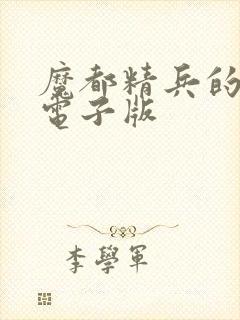 魔都精兵的
電子版
李學軍